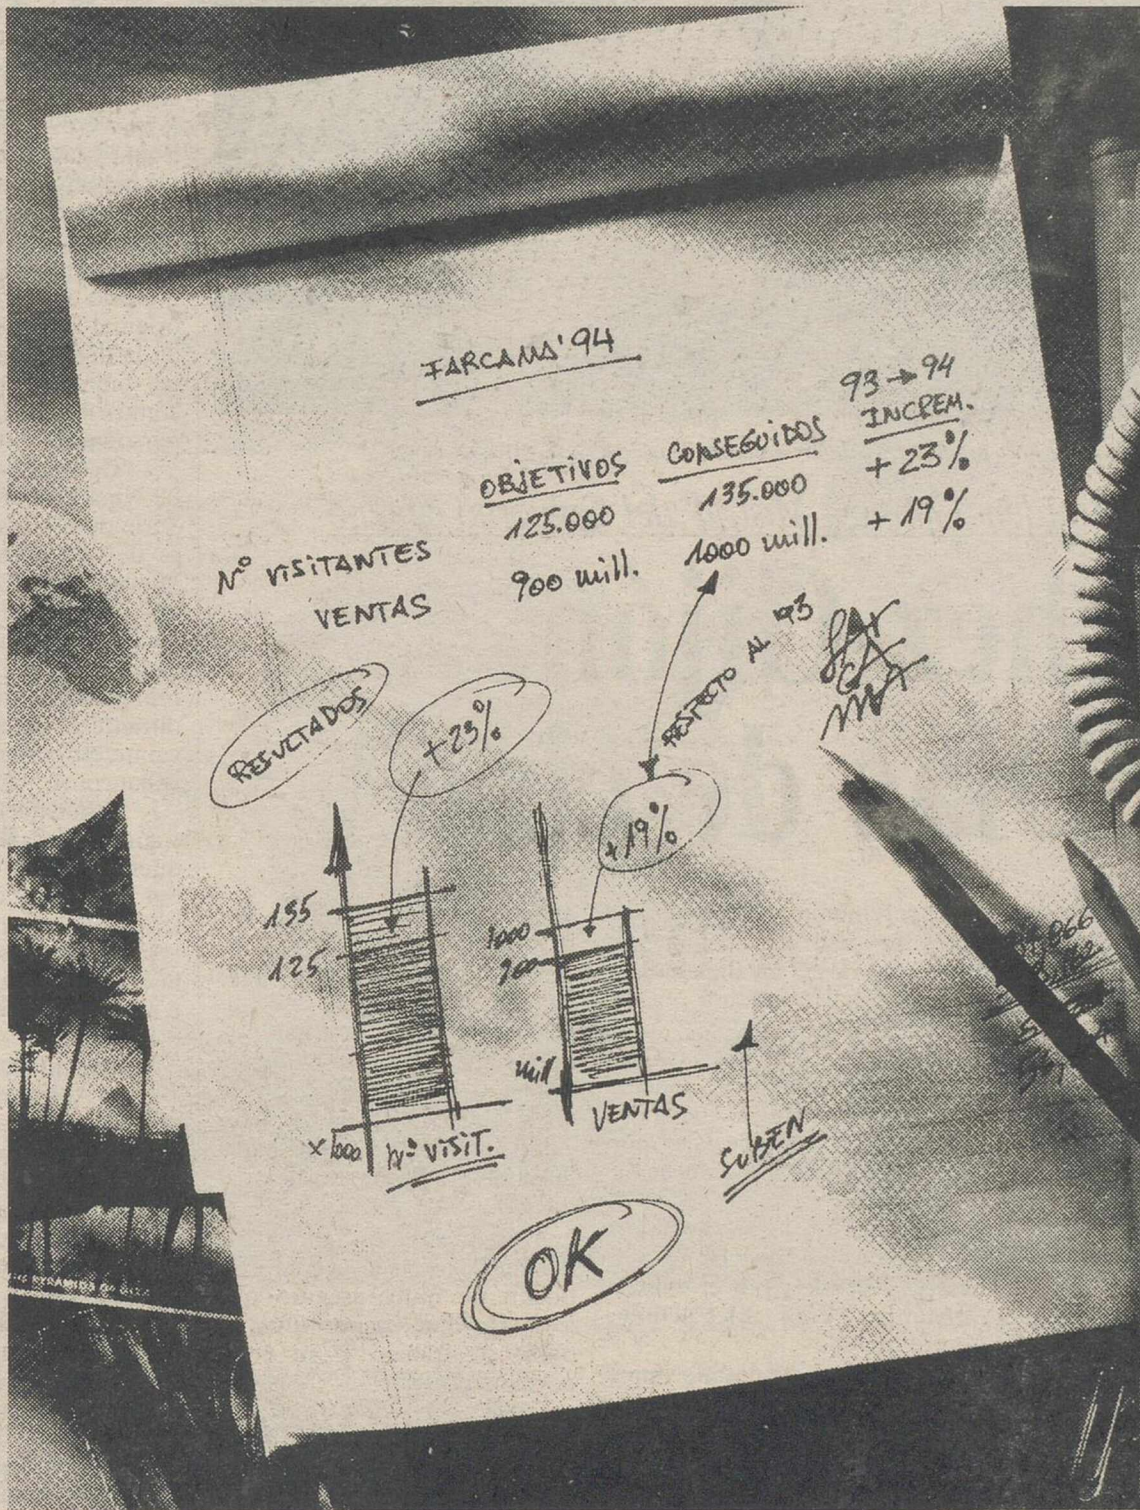 FARCAMA'94
93 → 94
OBJETIVOS CONSEGUIDOS INCREM.
Nº VISITANTES 125.000 135.000 +23%
VENTAS 900 mill. 1000 mill. +19%
RESPECTO AL '93
FAR
CA
MA
RESULTADOS
+23%
+19%
135
125
1000
900
mill
x1000 Nº VISIT.
VENTAS
SUBEN
OK